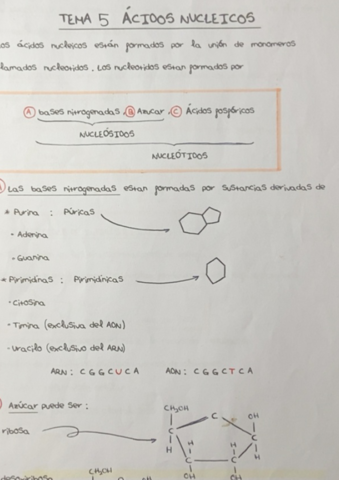 TEMA 5 ÁCIDOS NUCLEICOS
os ácidos nucleicos están formados por la unión de monomeros
lamados nucleotidos. Los nucleotidos estan formados por
A bases nitrogenadas, B Azucar, C Ácidos fosfóricos
NUCLEÓSIDOS
NUCLEÓTIDOS
Las bases nitrogenadas estan formadas por sustancias derivadas de
* Purina : Púricas
- Adenina
- Guanina
* Pirimidinas : Pirimidínicas
- Citosina
- Timina (exclusiva del ADN)
- Uracilo (exclusivo del ARN)
ARN : C G G C U C A ADN : C G G C T C A
Azúcar puede ser :
ribosa
CH₂OH
C
OH
C
C
H
H
H
C
C
H
OH
OH
CH₂OH
O
OH